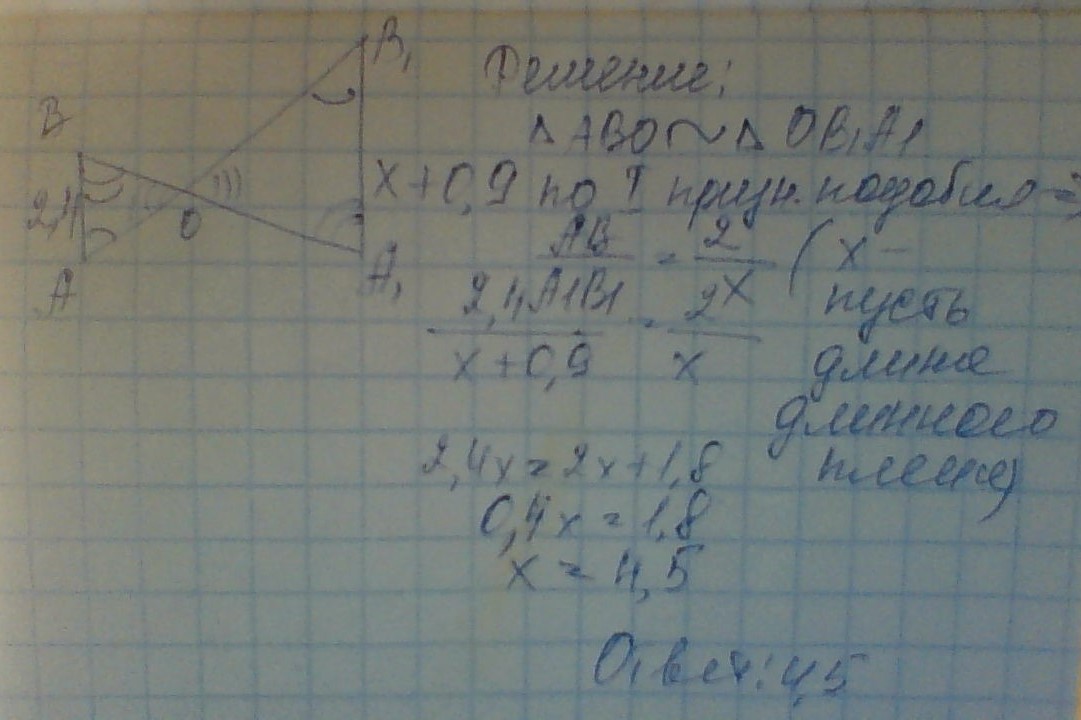 B
2,4
A
O
B₁
A₁
x+0,9
Решение:
Δ ABO ~ Δ OB₁A₁
по I призн. подобия =>
AB/A₁B₁ = 2/x (x –
пусть
длина
длинного
плеча)
2,4/x+0,9 = 2/x
2,4x = 2x+1,8
0,4x = 1,8
x = 4,5
Ответ: 4,5